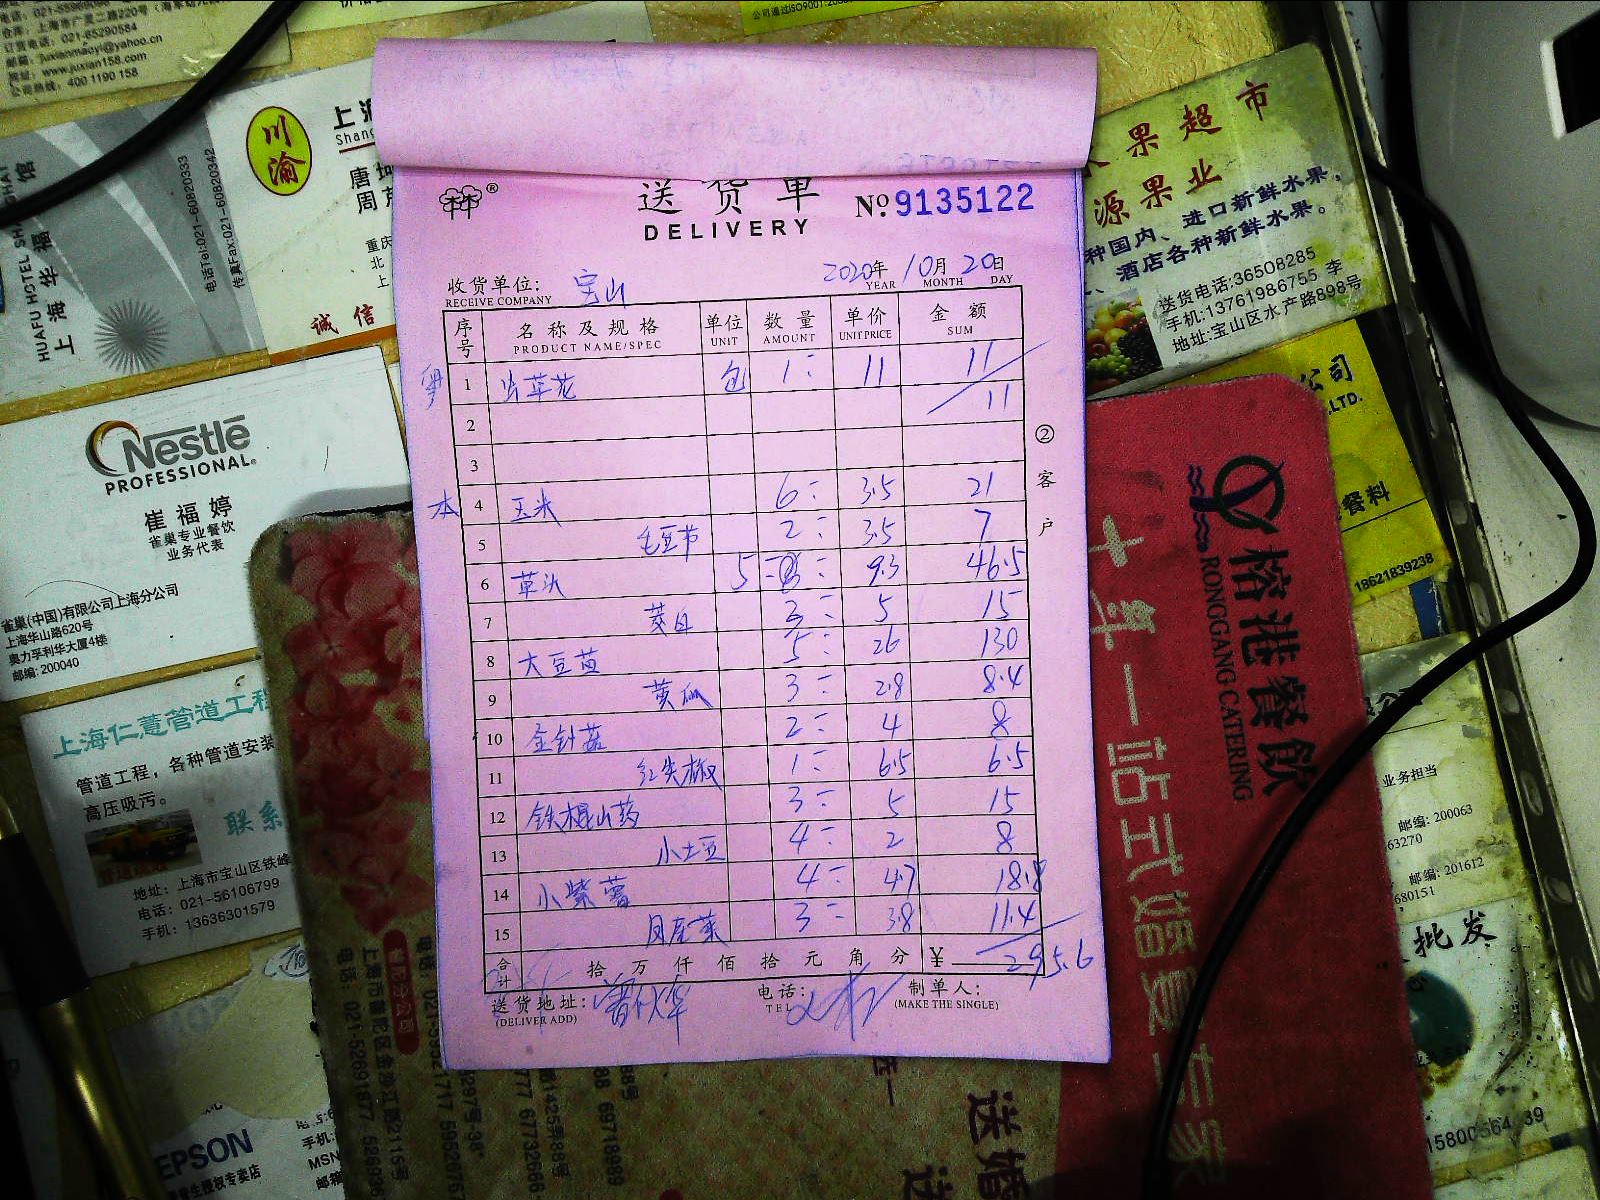 送货单
DELIVERY
№ 9135122
收货单位: 宝山
RECEIVE COMPANY
2020年 10月 20日
YEAR MONTH DAY
序号 名称及规格 单位 数量 单价 金额
PRODUCT NAME/SPEC UNIT AMOUNT UNIT PRICE SUM
1 虫草花 包 1 11 11
2 11
3
本 4 玉米 6 3.5 21
5 毛豆节 2 3.5 7
6 草头 5 9.3 46.5
7 茭白 3 5 15
8 大豆苗 5 26 130
9 黄瓜 3 2.8 8.4
10 金针菇 2 4 8
11 红尖椒 1 6.5 6.5
12 铁棍山药 3 5 15
13 小土豆 4 2 8
14 小紫薯 4 4.7 18.8
15 凤尾菜 3 3.8 11.4
合计 拾万仟佰拾元角分 ¥ 295.6
送货地址:
(DELIVER ADD)
电话:
TEL
制单人:
(MAKE THE SINGLE)
②客户
订货电话: 021-65290584
邮箱: juxianmaoyi@yahoo.cn
网址: www.juxian158.com
公司热线: 400 1190 158
HUAFU HOTEL SHANGHAI
上海华福
电话Tel:021-60820333
传真Fax:021-60820342
川渝
诚信
Nestlé
PROFESSIONAL
崔福婷
雀巢专业餐饮
业务代表
雀巢(中国)有限公司上海分公司
上海华山路620号
奥力孚利华大厦4楼
邮编: 200040
上海仁薏管道工程
管道工程,各种管道安装
高压吸污。
联系
地址: 上海市宝山区铁峰
电话: 021-56106799
手机: 13636301579
EPSON
果超市
源果业
种国内、进口新鲜水果,
酒店各种新鲜水果。
送货电话:36508285
手机:13761986755 李
地址:宝山区水产路898号
公司
LTD.
餐料
18621839238
榕港餐饮
RONGGANG CATERING
十年一站式婚宴专家
业务担当
邮编: 200063
邮编: 201612
批发